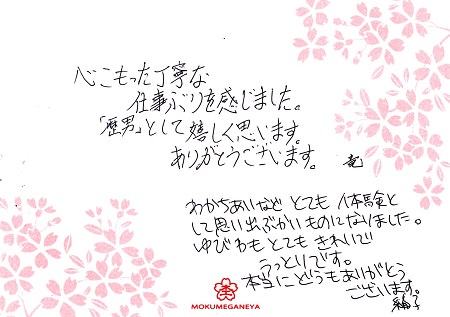 心こもった丁寧な
仕事ぶりを感じました。
「歴男」として嬉しく思います。
ありがとうございます。
わかちあいなど とても 体験と
して思い出ぶかいものになりました。
ゆびわも とても きれいで
うっとりです。
本当にどうもありがとう
ございます。
MOKUMEGANEYA